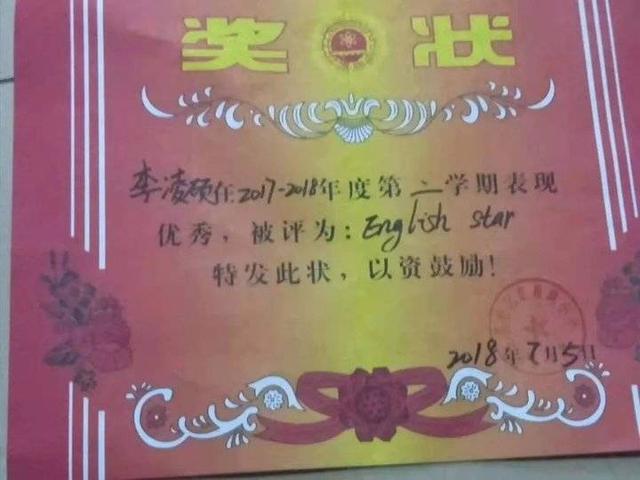 奖状
李凌硕在2017-2018年度第二学期表现
优秀，被评为：English star
特发此状，以资鼓励！
2018年7月5日